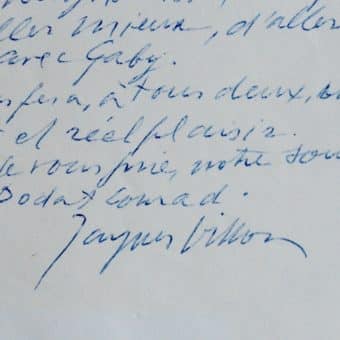 aller mieux, d'aller
avec Gaby.
fera, à tous deux, un
et réel plaisir.
vous prie, notre
Conrad.
Jacques Villon